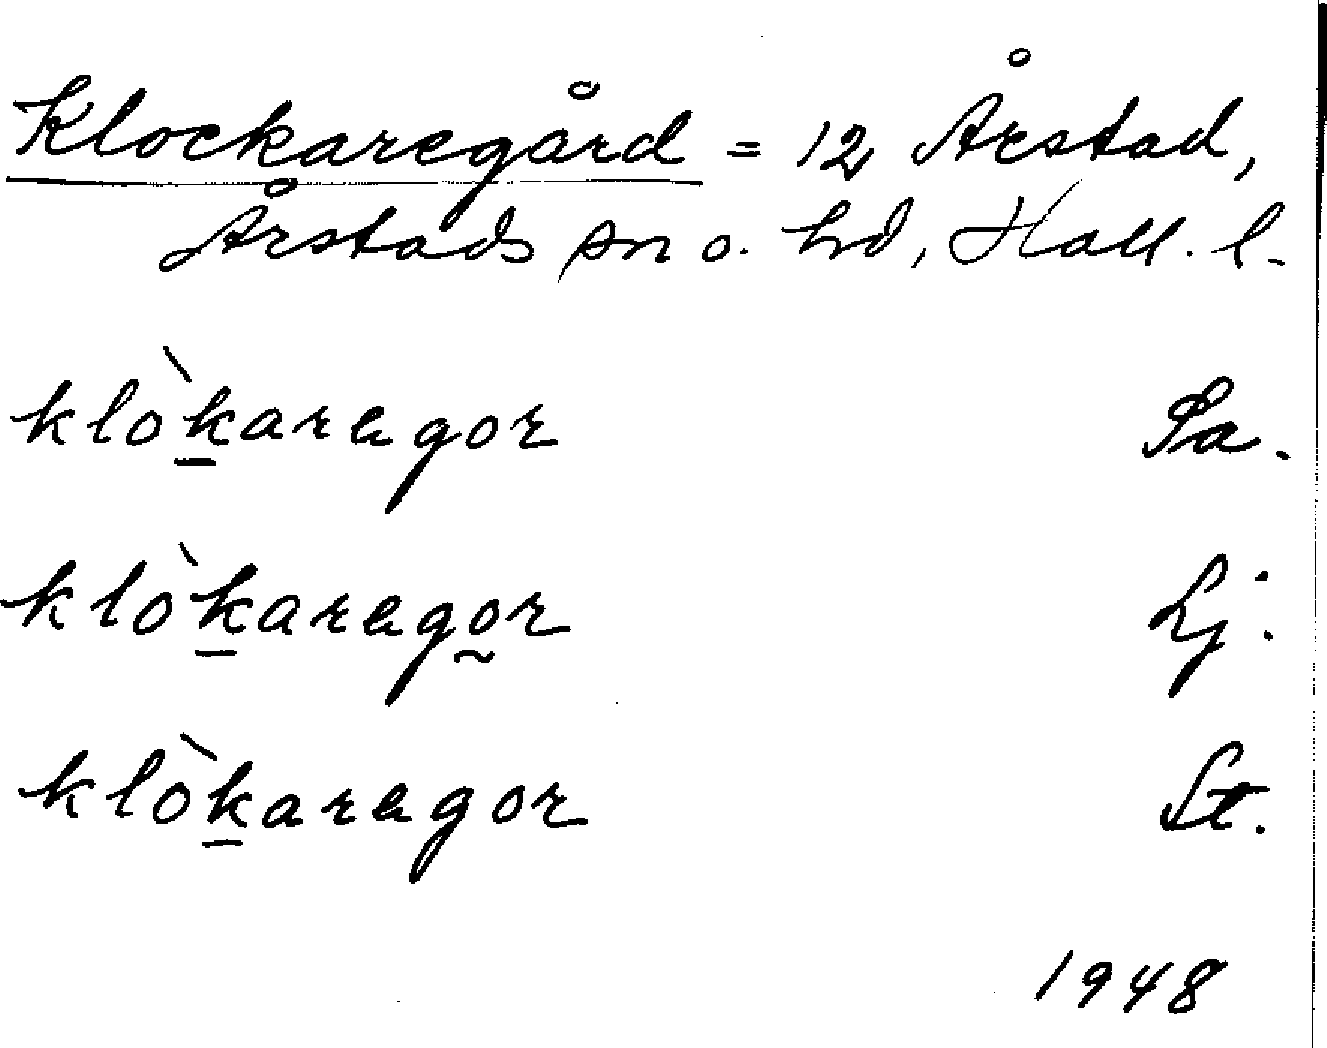 Klockaregård = 12 Årstad,
Årstads sn o. hd, Hall. l.
klò̱karagor Sa.
klò̱karago̰r Lj.
klò̱karagor St.
1948